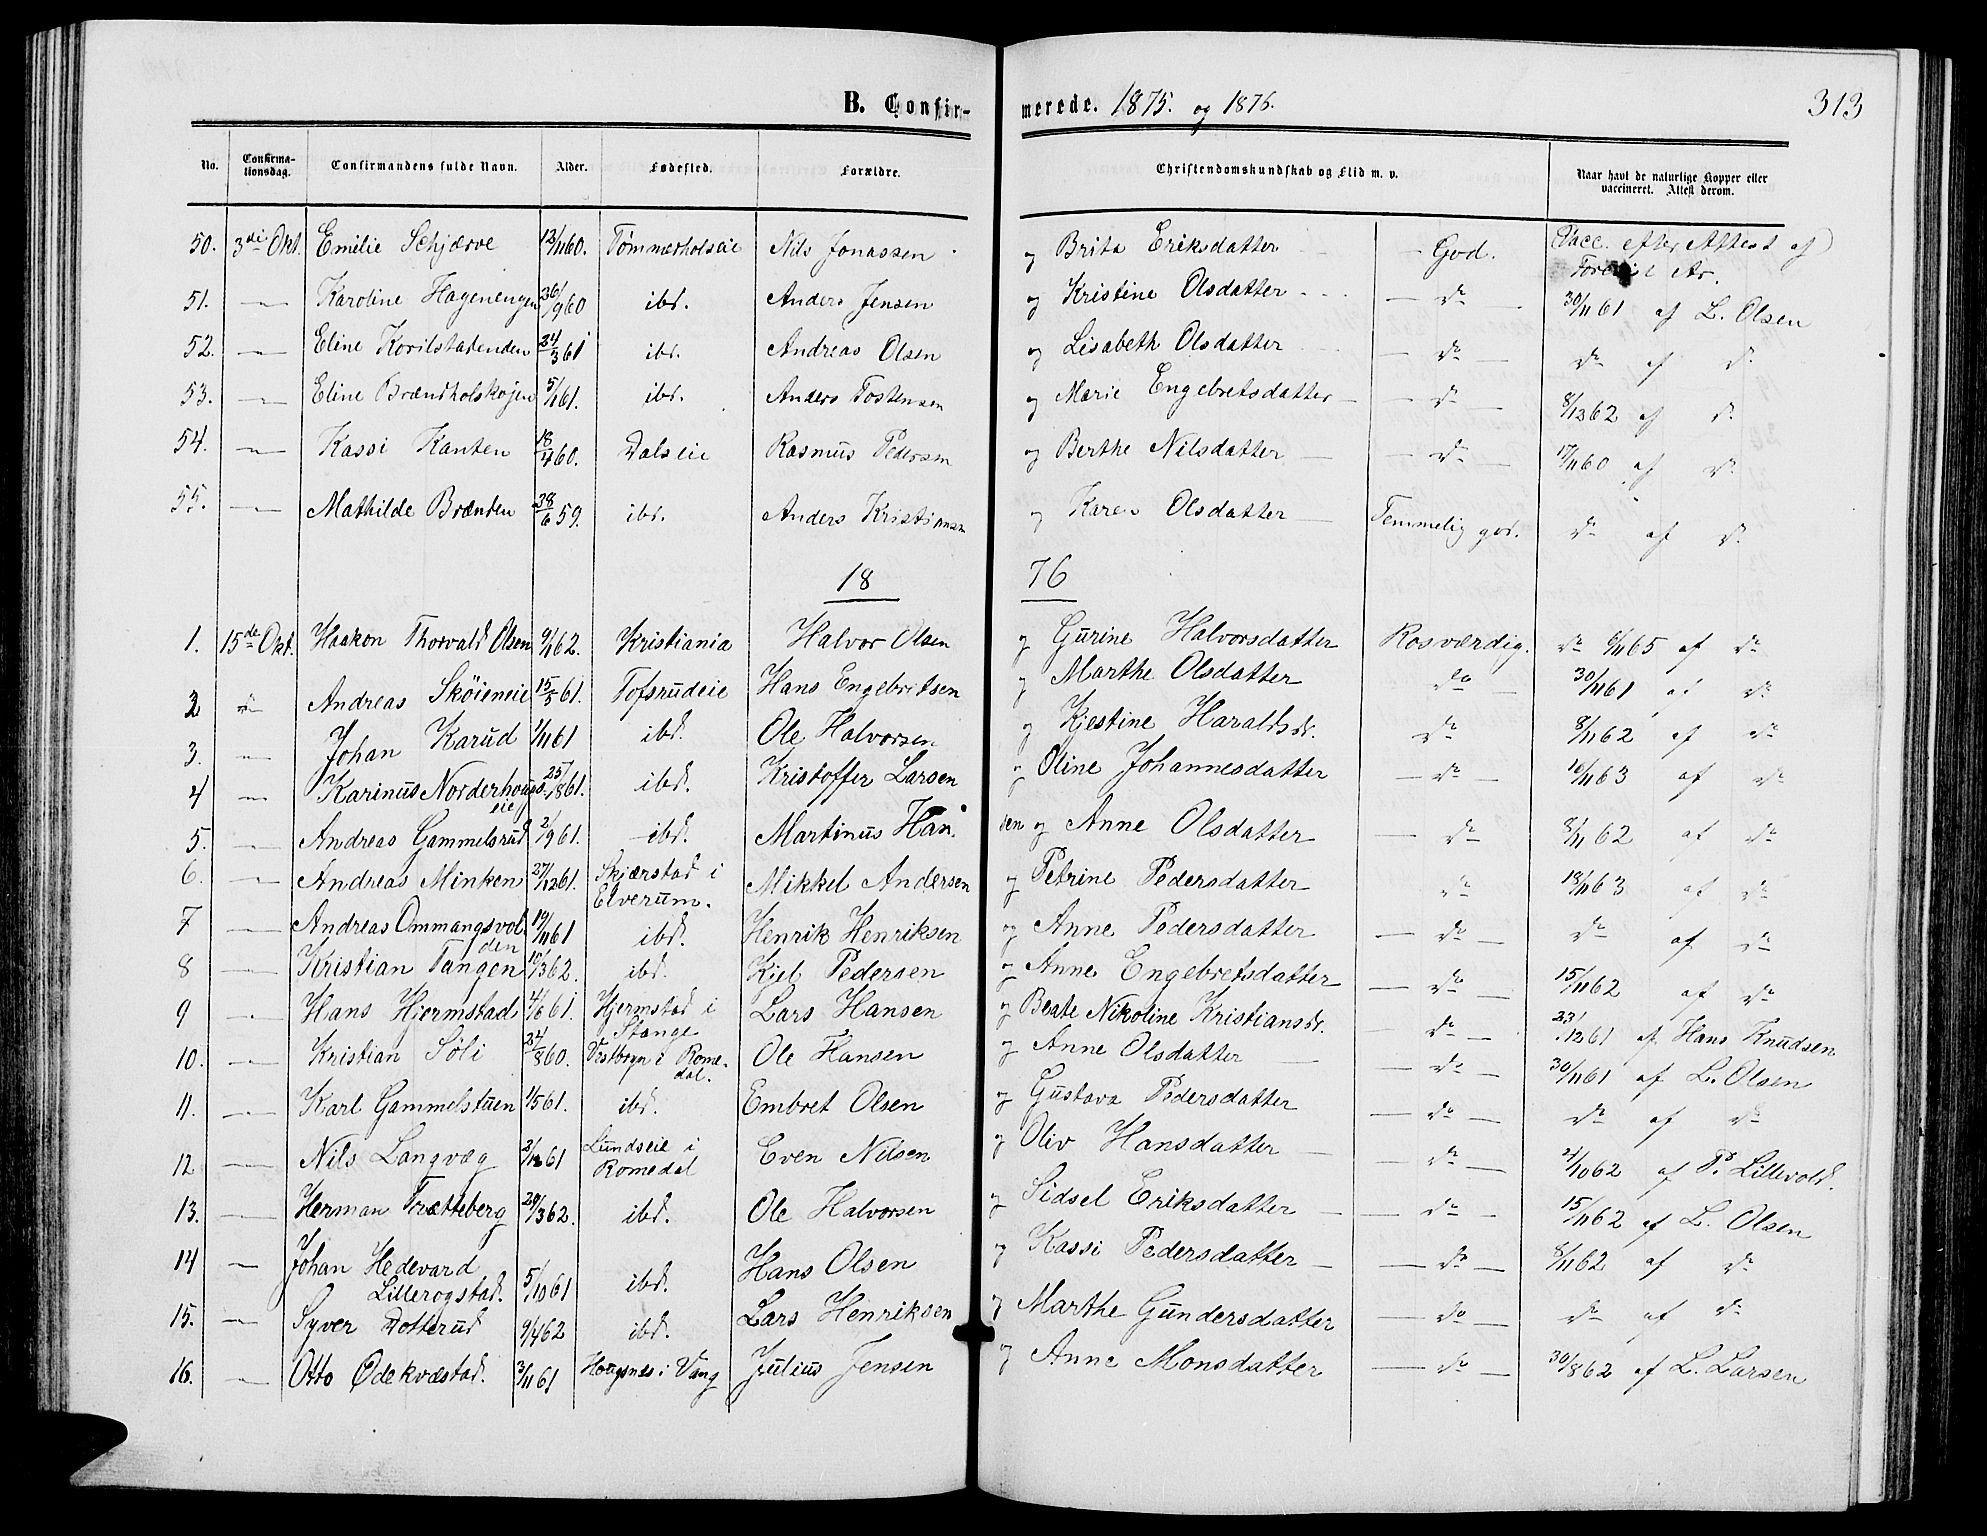 B. Confirmerede. 1875. og 1876. 313
No. Confirmationsdag. Confirmandens fulde Navn. Alder. Fødested. Forældre. Christendomskundskab og Flid m. v. Naar havt de naturlige Kopper eller vaccineret. Attest derom.
50. 3die Okt. Emilie Schjærve 12/1160. Tømmerholseie Nils Jonassen og Brita Eriksdatter God. Vacc. efter Attest af
51. — Karoline Hagenengen /960 ibd. Anders Jensen og Kristine Olsdatter — do — 30/1161 af L. Olsen
52. — Eline Korilstadenden 24/361 ibd. Andreas Olsen og Lisabeth Olsdatter — do — do af do
53. — Eline Brændholskojen 5/161. ibd. Anders Tostensen og Marie Engebretsdatter — do — 8/1262 af do
54. — Kassi Kanten 18/460. Dalseie Rasmus Pedersen og Berthe Nilsdatter — do — 17/1160 af do
55. — Mathilde Brænden 28/659. ibd. Anders Kristiansen og Karen Olsdatter — Temmelig god. do af do
18 76
1. 15de Okt. Haakon Thorvald Olsen 9/162. Kristiania Halvor Olsen og Gurine Halvorsdatter Rosværdig. do 6/1165 af do
2 — Andreas Skøieneie 15/561. Tofsrudeie Hans Engebritsen og Marthe Olsdatter do — 30/1161 af do
3. — Johan Karud 1/1161 ibd. Ole Halvorsen og Kjestine Haraldsdr. do 8/1162 af do
4 — Karinus Norderhougs- 25/861. ibd. Kristoffer Larsen og Oline Johannesdatter — do — 16/1163 af do
eie
5. — Andreas Gammelsrud 2/961. ibd. Martinus Hansen og Anne Olsdatter — do — 8/1162 af do
6. — Andreas Minken 27/1261. Skjærstad i Mikkel Andersen og Petrine Pedersdatter do — 18/1163 af do
Elverum.
7 — Andreas Ommangsvol- 19/1161 ibd. Henrik Henriksen og Anne Pedersdatter — do — do af do
den
8 — Kristian Tangen /362. ibd. Kjel Pedersen og Anne Engebretsdatter — do — 15/1162 af do
9 — Hans Hjermstad 4/661. Hjermstad i Lars Hansen og Beate Nikoline Kristiansdr. do — /1261 af Hans Knudsen
Stange
10. — Kristian Søli 24/860. Vestbygn i Rome- Ole Hansen og Anne Olsdatter — do — 30/1161 af L. Olsen
dal.
11. — Karl Gammelstuen 1/561. ibd. Embret Olsen og Gustava Pedersdatter — do — do af do
12 — Nils Langvæg 2/1261 Lundseie i Even Nilsen og Oliv Hansdatter — do — /1062 af P. Lillevold.
Romedal
13. — Herman Trætteberg 20/362. ibd. Ole Halvorsen og Sidsel Eriksdatter — do — 15/1162 af L. Olsen
14 — Johan Hedevard 5/1061 ibd. Hans Olsen og Kassi Pedersdatter — do — 8/1162 af do
Lillerogstad.
15. — Syver Dotterud 9/462 ibd. Lars Henriksen og Marthe Gundersdatter — do — do af do
16. — Otto Ødekvæstad. 3/1161 Hougsnes i Vang Julius Jensen og Anne Monsdatter — do — 30/862 af L. Larsen